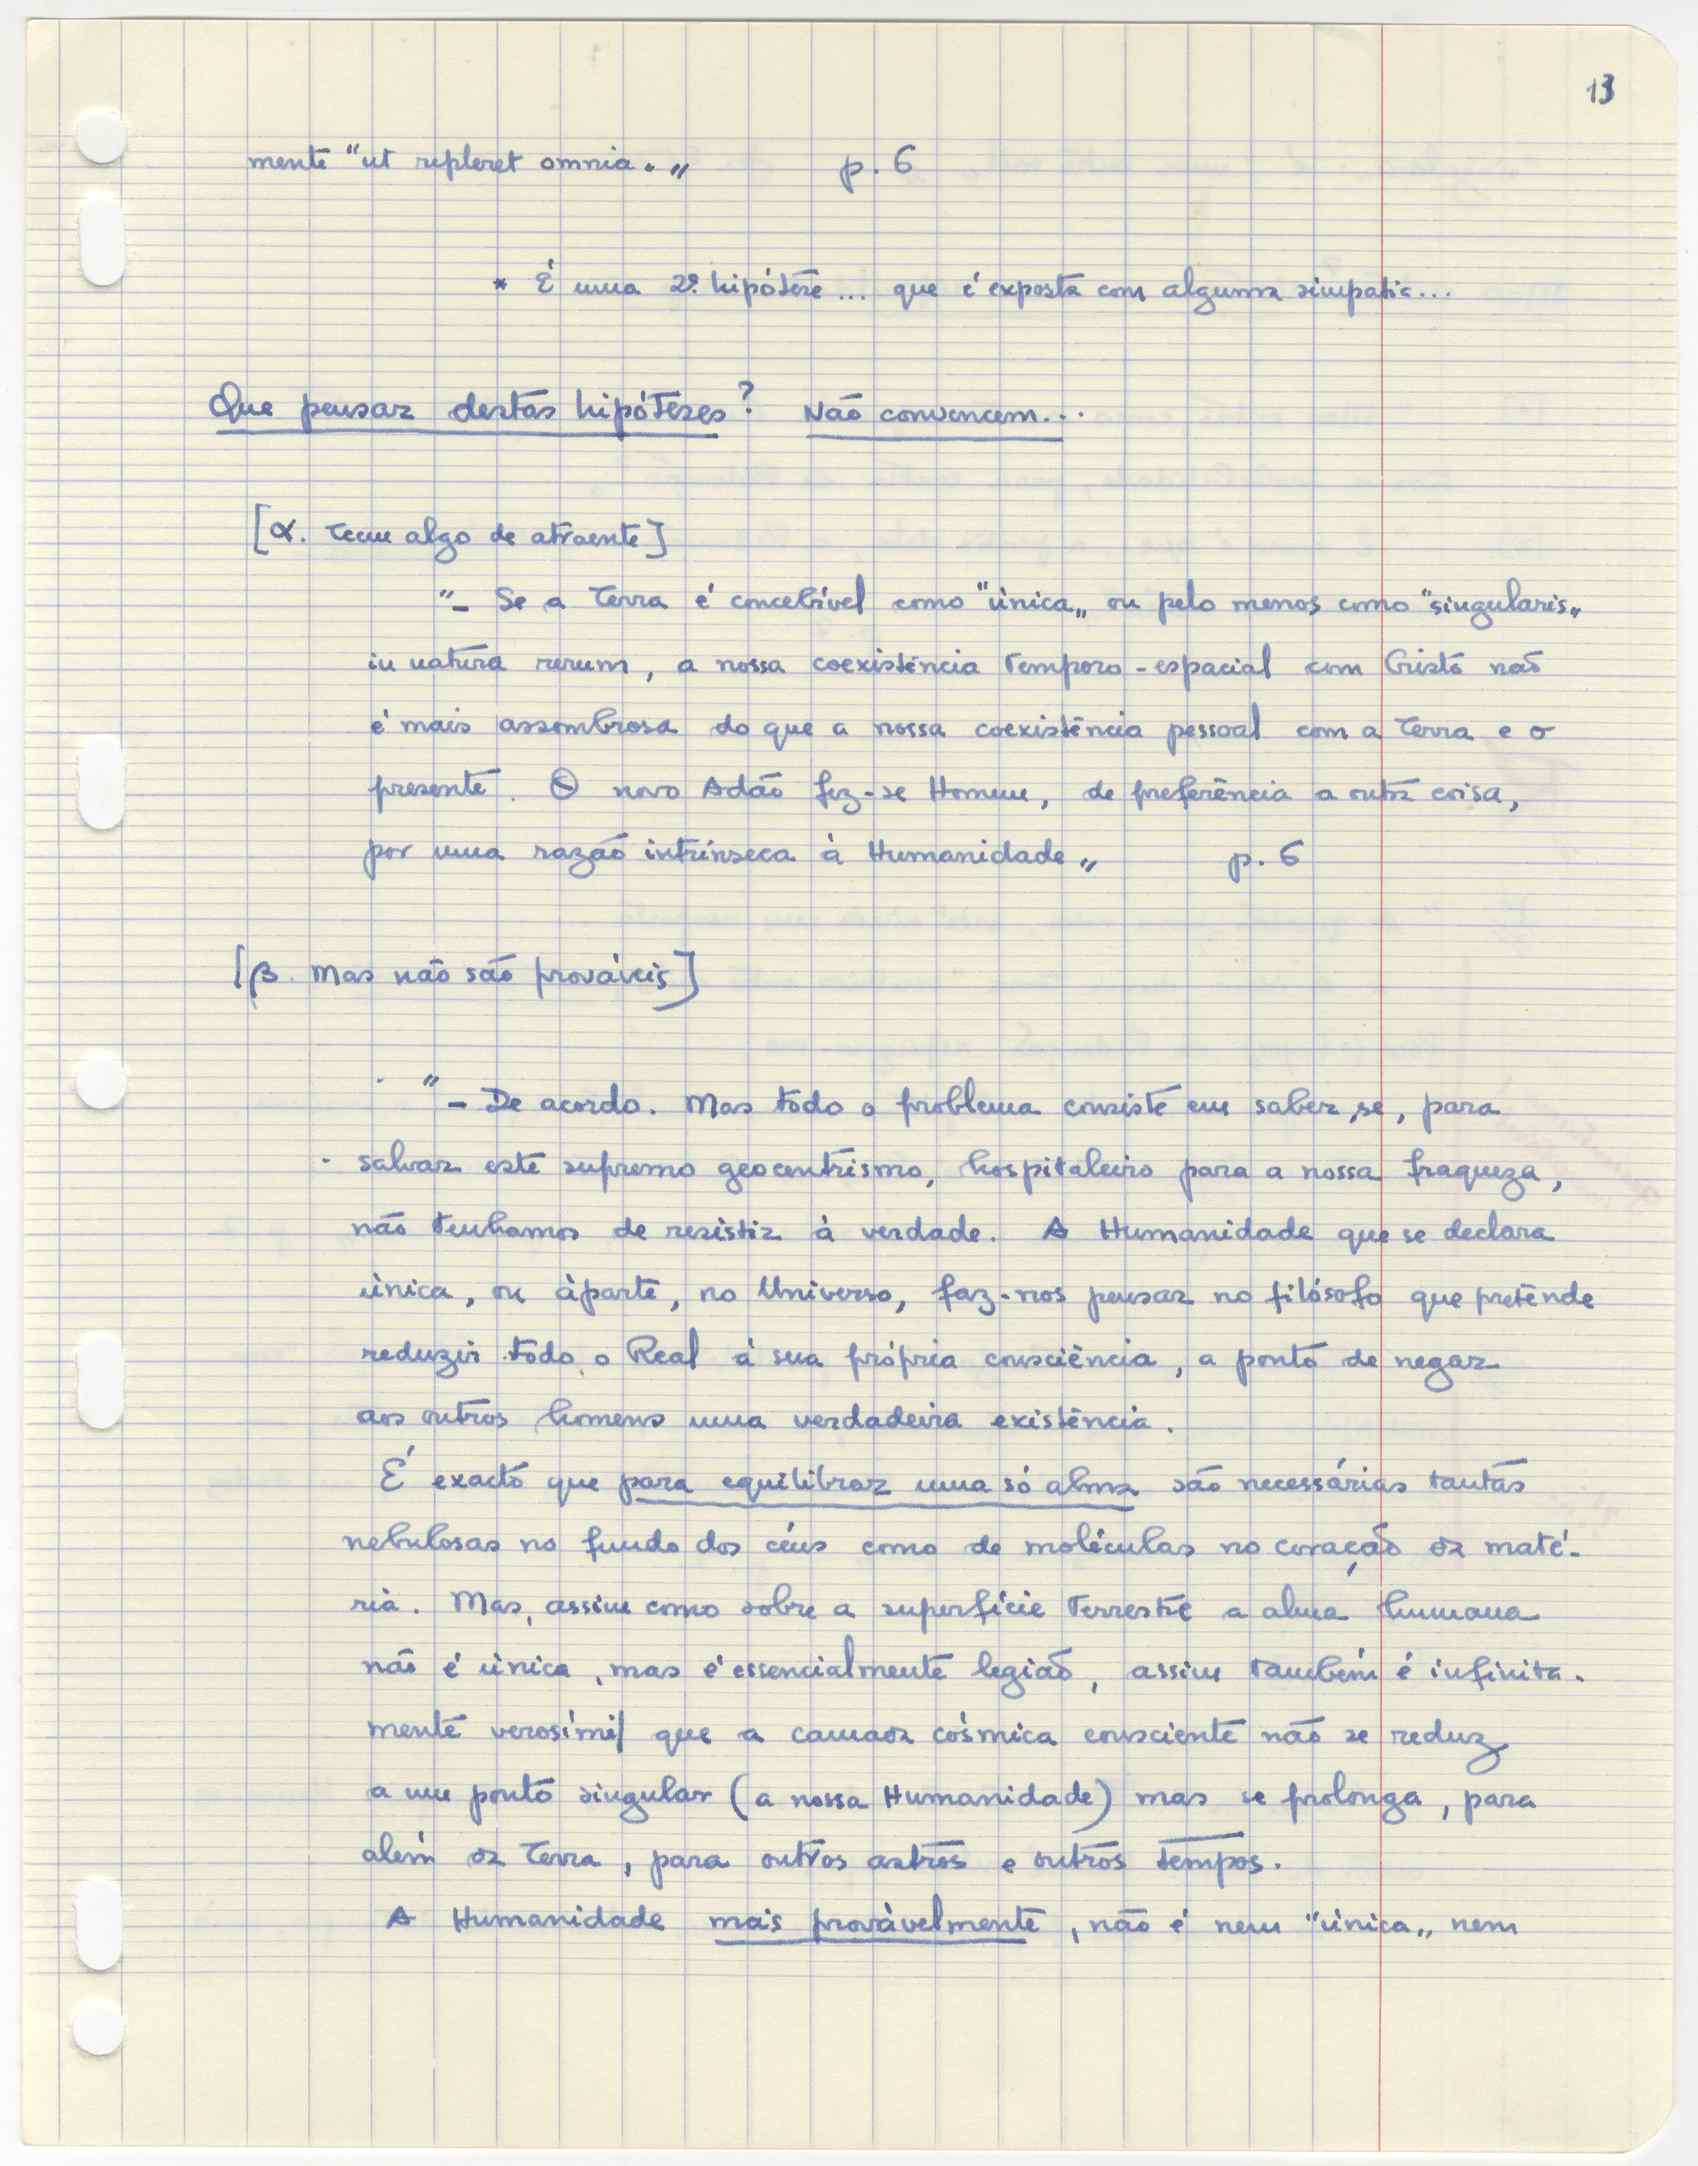 13
mente "ut repleret omnia." p. 6
* É uma 2ª hipótese... que é exposta com alguma simpatia...
Que pensar destas hipóteses? Não convencem...
[α. Tem algo de atraente]
"– Se a Terra é concebível como "única" ou pelo menos como "singularis"
in natura rerum, a nossa coexistência temporo-espacial com Cristo não
é mais assombrosa do que a nossa coexistência pessoal com a Terra e o
presente. O novo Adão fez-se Homem, de preferência a outra coisa,
por uma razão intrínseca à Humanidade" p. 6
[β. Mas não são prováveis]
"– De acordo. Mas todo o problema consiste em saber, se, para
salvar este supremo geocentrismo, hospitaleiro para a nossa fraqueza,
não tenhamos de resistir à verdade. A Humanidade que se declara
única, ou àparte, no Universo, faz-nos pensar no filósofo que pretende
reduzir todo o Real à sua própria consciência, a ponto de negar
aos outros homens uma verdadeira existência.
É exacto que para equilibrar uma só alma são necessárias tantas
nebulosas no fundo dos céus como de moléculas no coração da maté-
ria. Mas, assim como sobre a superfície terrestre a alma humana
não é única, mas é essencialmente legião, assim também é infinita-
mente verosímil que a camada cósmica consciente não se reduz
a um ponto singular (a nossa Humanidade) mas se prolonga, para
além da Terra, para outros astros e outros tempos.
A Humanidade mais provàvelmente, não é nem "única" nem